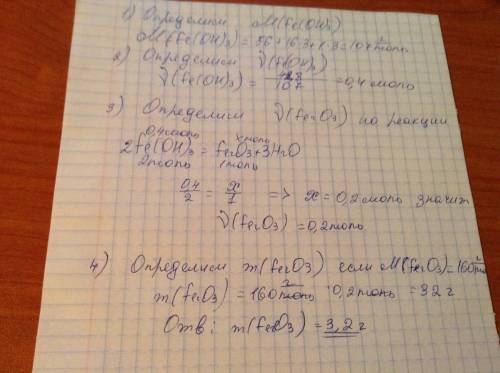 1) Определим M(Fe(OH)3)
M(Fe(OH)3) = 56+16·3+1·3=107 г/моль
2) Определим ν(Fe(OH)3)
ν(Fe(OH)3) = 42,8/107 =0,4 моль
3) Определим ν(Fe2O3) по реакции
0,4 моль x моль
2Fe(OH)3 = Fe2O3+3H2O
2 моль 1 моль
0,4/2 = x/1 => x = 0,2 моль значит
ν(Fe2O3) = 0,2 моль
4) Определим m(Fe2O3) если M(Fe2O3)=160 г/моль
m(Fe2O3) = 160 г/моль · 0,2 моль = 32 г
Отв: m(Fe2O3) = 3,2 г